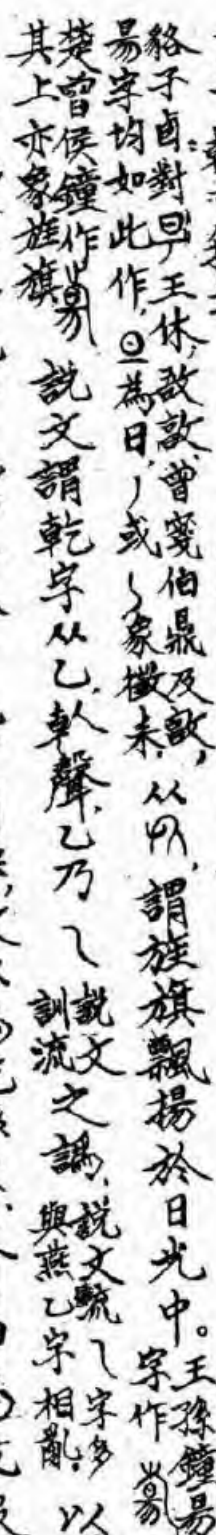 貉子卣對昜王休,故敦、曾伯鼎及敦,
昜字均如此作,為日,丿或㇂象徽未,
从㫃,謂旌旗飄揚於日光中。
王孫鐘昜
字作
楚曾侯鐘作
其上亦象旌旗
説文謂乾字从乙,倝聲,乙乃乁
説文
訓流
之譌,
説文乁字多
與燕乙字相亂.
以